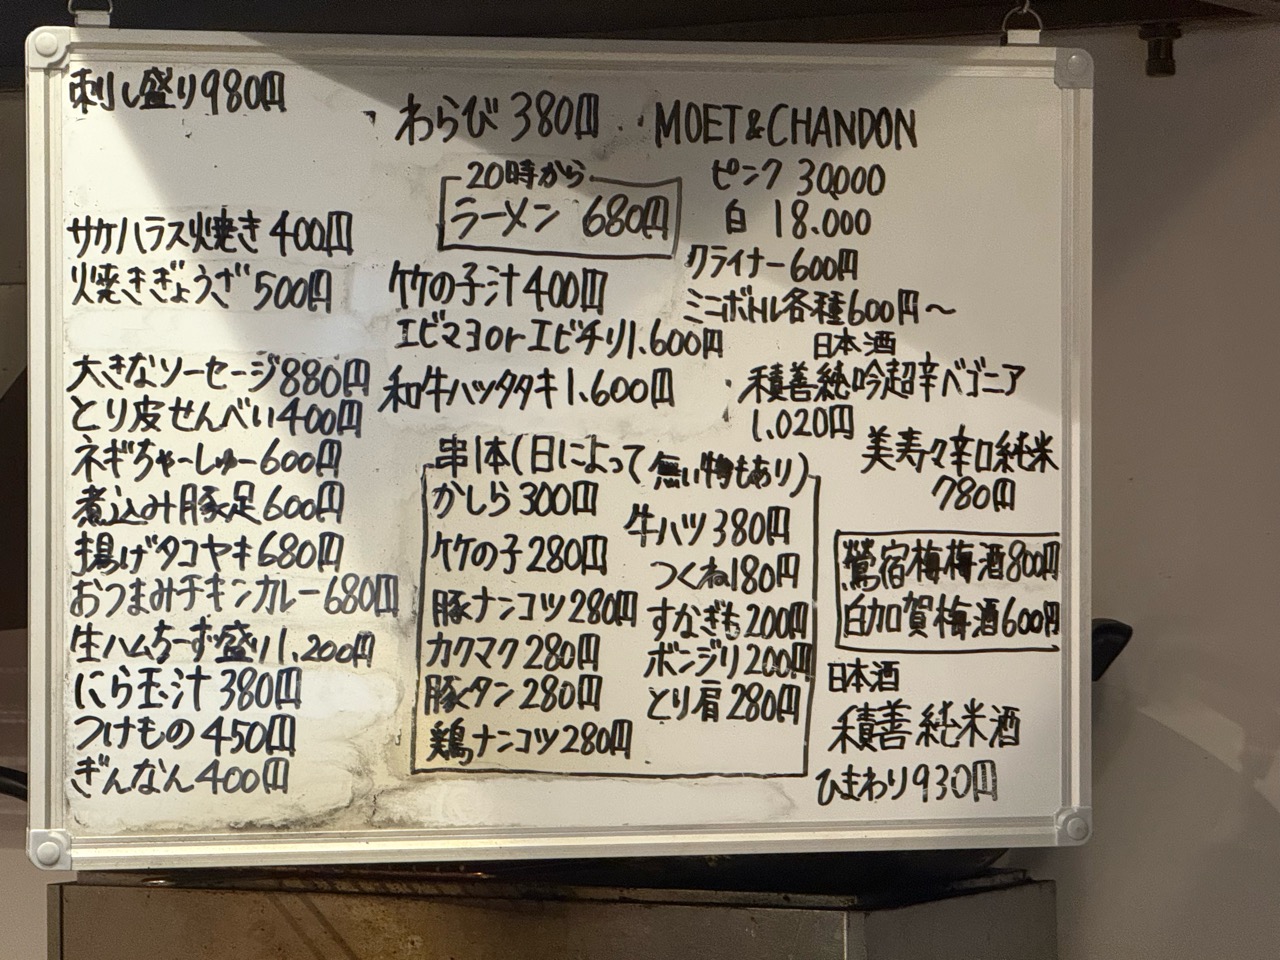 刺し盛り980円
サケハラス焼き400円
焼きぎょうざ500円
大きなソーセージ880円
とり皮せんべい400円
ネギちゃーしゅー600円
煮込み豚足600円
揚げタコヤキ680円
おつまみチキンカレー680円
生ハムちーず盛り1,200円
にら玉汁380円
つけもの450円
ぎんなん400円
わらび380円
20時から
ラーメン 680円
竹の子汁400円
エビマヨorエビチリ1.600円
和牛ハツタタキ1.600円
串1本(日によって無い物もあり)
かしら300円
竹の子280円
豚ナンコツ280円
カクマク280円
豚タン280円
鶏ナンコツ280円
牛ハツ380円
つくね180円
すなぎも200円
ボンジリ200円
とり肩280円
MOET&CHANDON
ピンク 30,000
白 18.000
クライナー600円
ミニボトル各種600円～
日本酒
積善純吟超辛ベゴニア
1,020円
美寿々辛口純米
780円
鶯宿梅梅酒800円
白加賀梅酒600円
日本酒
積善純米酒
ひまわり930円